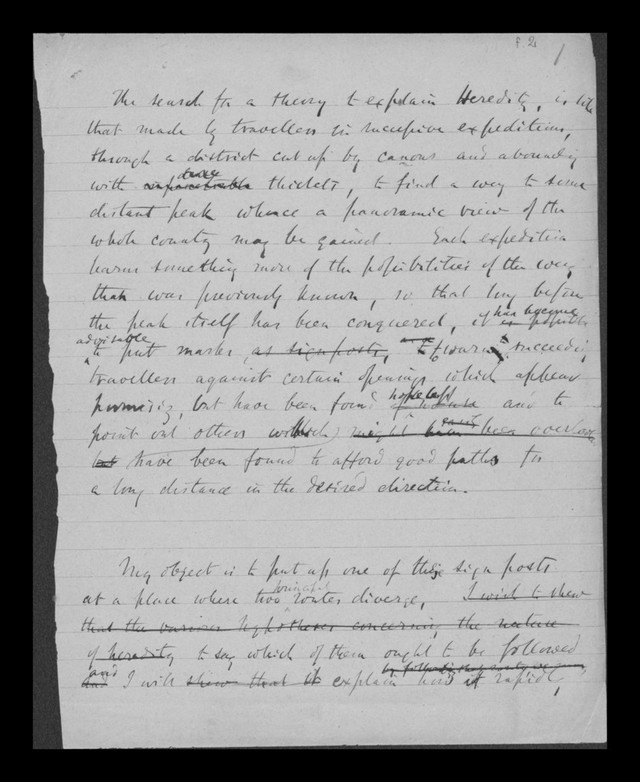 f. 2
1
The search for a theory to explain Heredity, is like
that made by travellers in successive expeditions,
through a district cut up by cañons and abounding
dense
with impenetrable thickets, to find a way to some
distant peak whence a panoramic view of the
whole country may be gained. Each expedition
learns something more of the possibilities of the way
than was previously known, so that long before
the peak itself has been conquered, it has become
is possible
advisable
to put marks, as sign posts, to warn succeeding
travellers against certain openings which appear
promising, but have been found hopeless and to
point out others which might have been overlooked
but have been found to afford good paths for
a long distance in the desired direction.
My object is to put up one of these sign posts
principal
at a place where two routes diverge, I wish to shew
that the various hypotheses concerning the nature
of heredity to say which of them ought to be followed
and
and I will shew that it explain how it rapidly